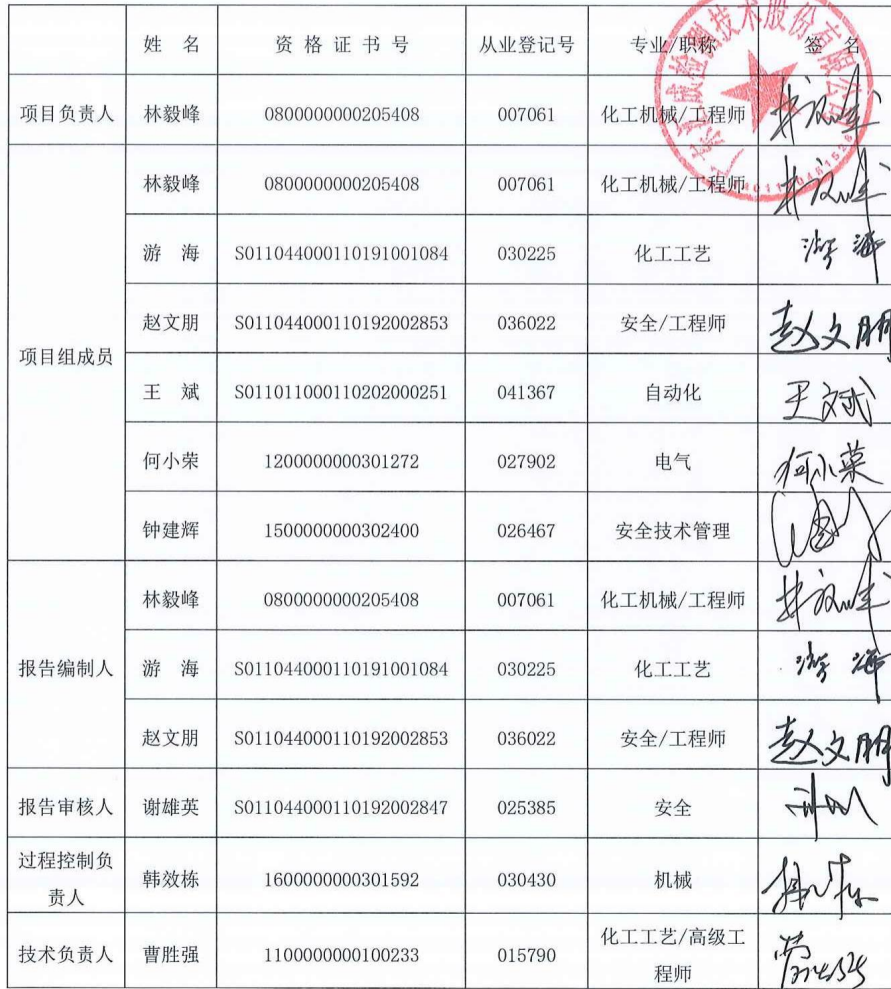 姓 名 资 格 证 书 号 从业登记号 专业/职称 签 名
项目负责人 林毅峰 0800000000205408 007061 化工机械/工程师 林毅峰
项目组成员 林毅峰 0800000000205408 007061 化工机械/工程师 林毅峰
游 海 S011044000110191001084 030225 化工工艺 游海
赵文朋 S011044000110192002853 036022 安全/工程师 赵文朋
王 斌 S011011000110202000251 041367 自动化 王斌
何小荣 1200000000301272 027902 电气 何小荣
钟建辉 1500000000302400 026467 安全技术管理
报告编制人 林毅峰 0800000000205408 007061 化工机械/工程师 林毅峰
游 海 S011044000110191001084 030225 化工工艺 游海
赵文朋 S011044000110192002853 036022 安全/工程师 赵文朋
报告审核人 谢雄英 S011044000110192002847 025385 安全
过程控制负
责人 韩效栋 1600000000301592 030430 机械
技术负责人 曹胜强 1100000000100233 015790 化工工艺/高级工
程师